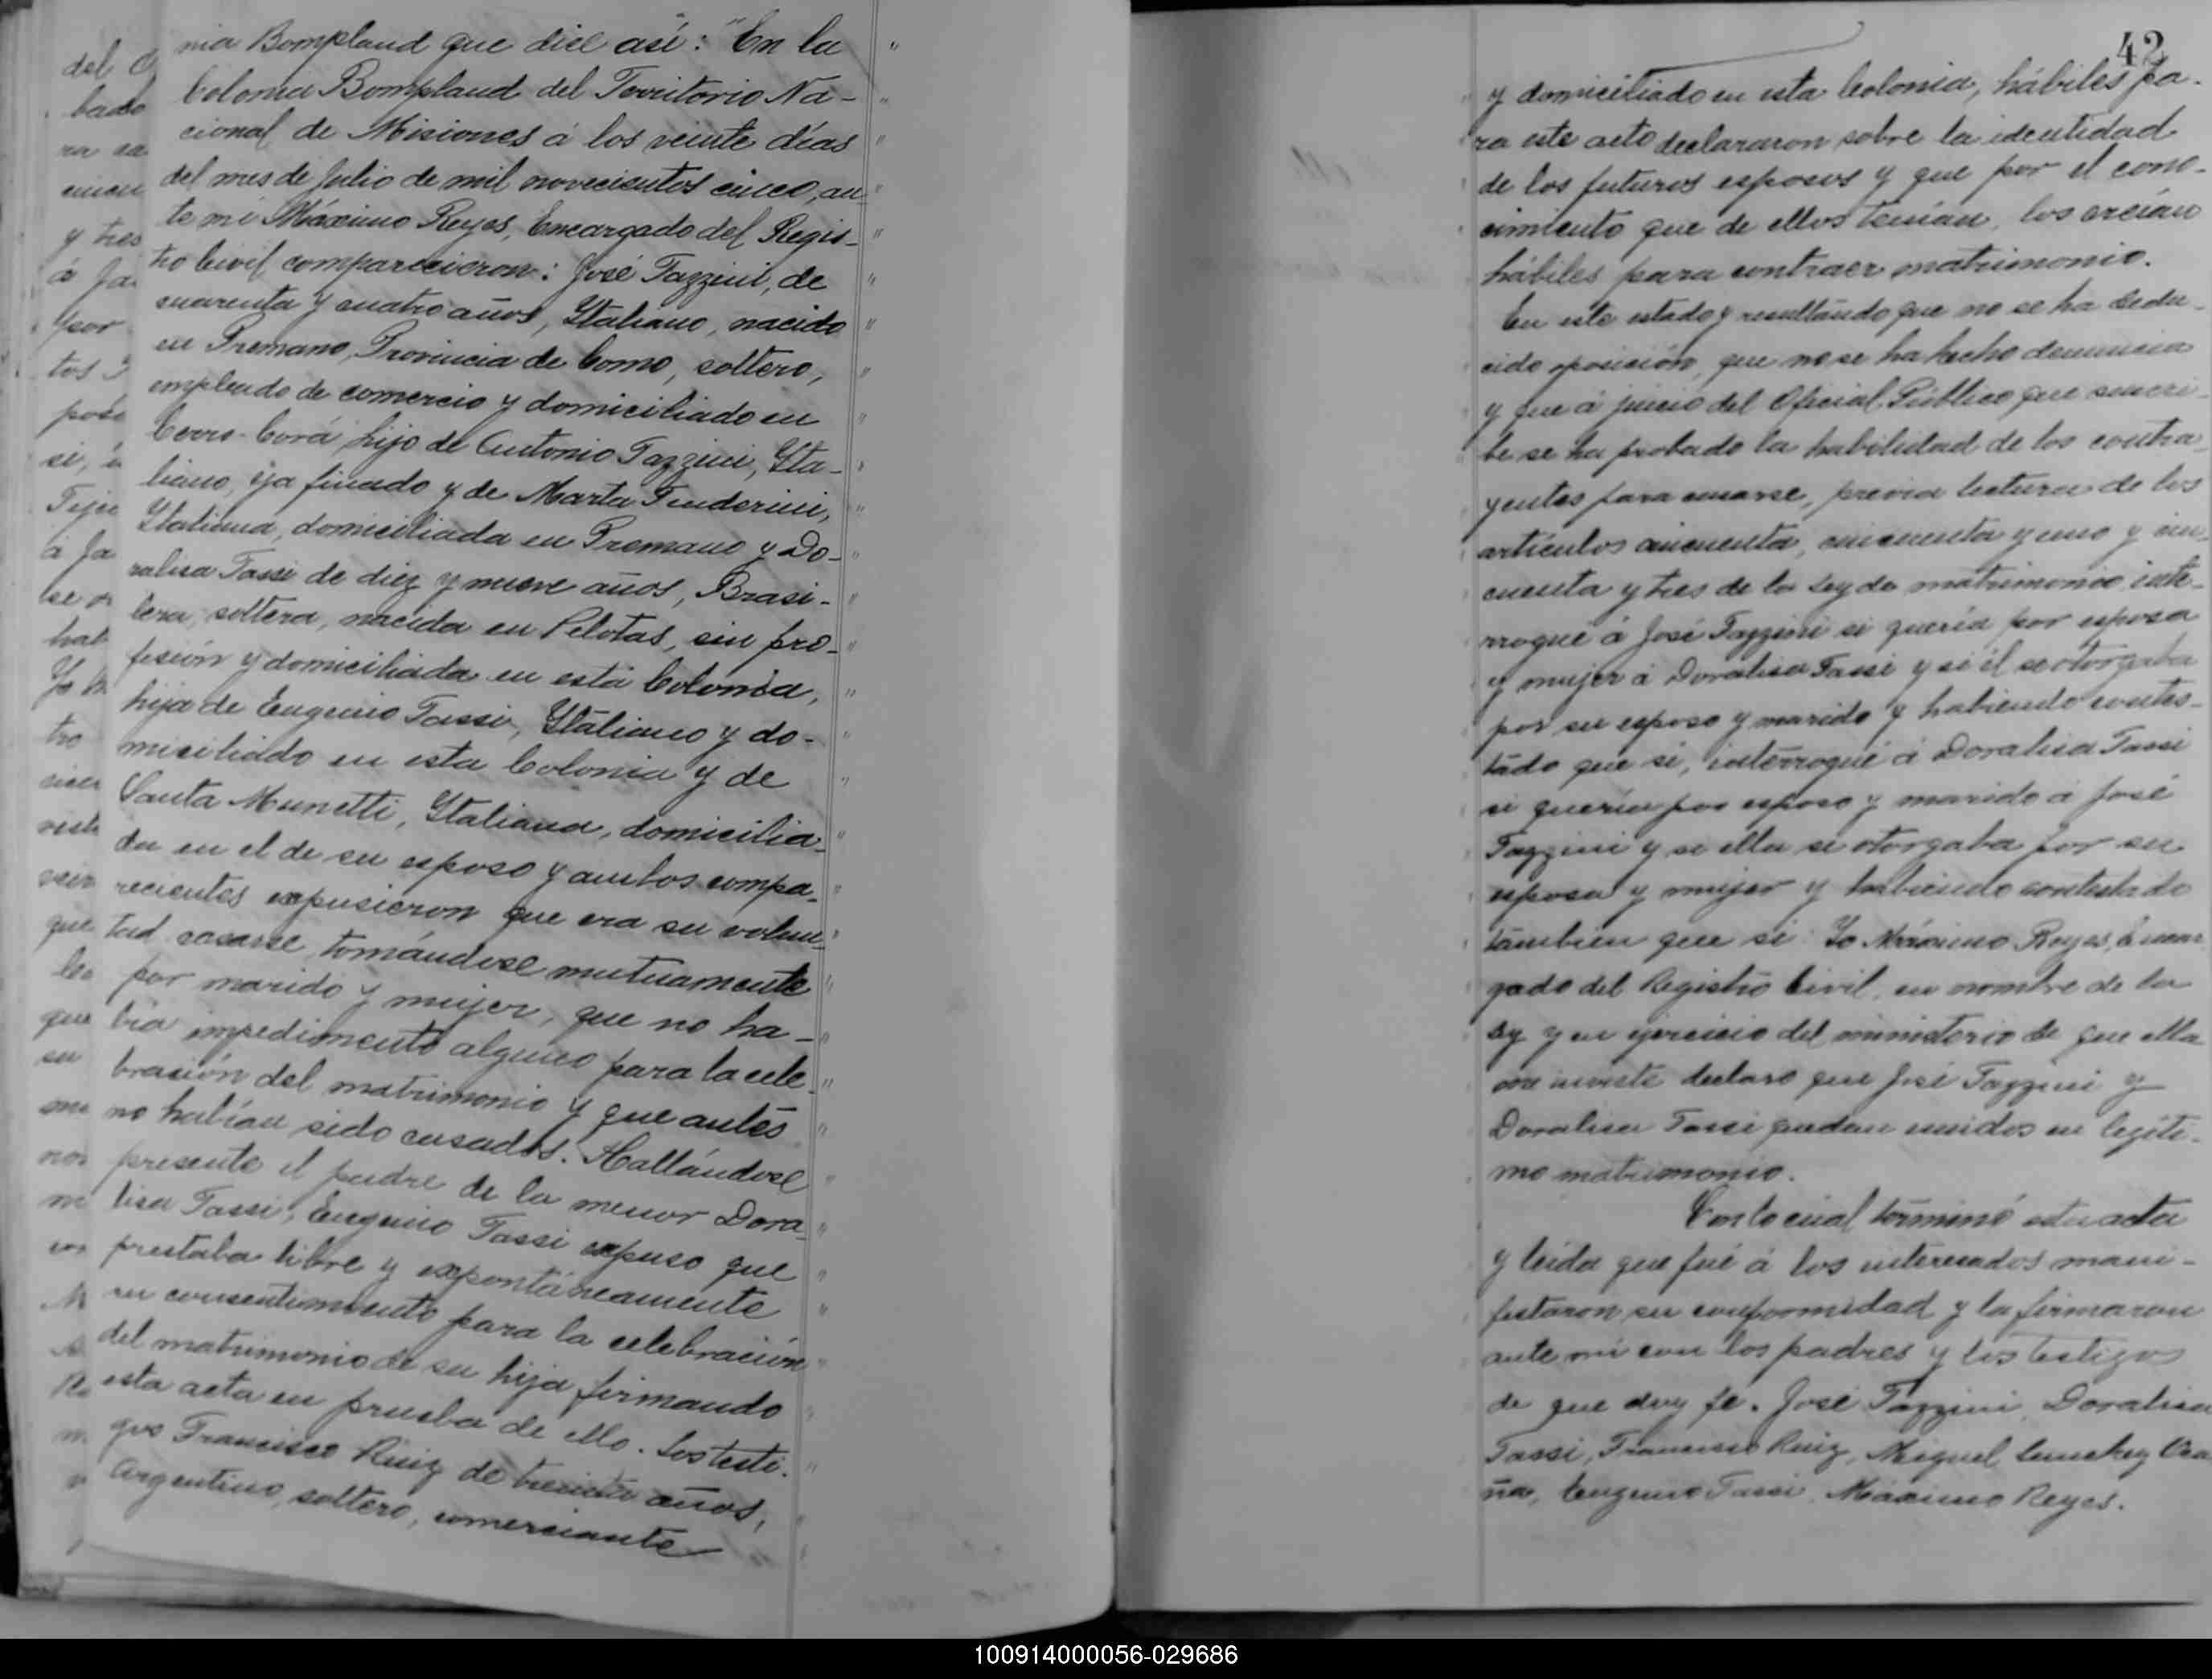 nia Bompland que dice así: "En la
Colonia Bompland del Territorio Na-
cional de Misiones á los veinte días
del mes de Julio de mil novecientos cinco, an-
te mí Máximo Reyes, Encargado del Regis-
tro Civil comparecieron: José Tazzini, de
cuarenta y cuatro años, Ytaliano, nacido
en Premano, Provincia de Como, soltero,
empleado de comercio y domiciliado en
Cerro-Corá, hijo de Antonio Tazzini, Yta-
liano, ya finado y de Marta Tenderini,
Ytaliana, domiciliada en Premano y Do-
ralisa Tassi de diez y nueve años, Brasi-
lera, soltera, nacida en Pelotas, sin pro-
fesión y domiciliada en esta Colonia,
hija de Eugenio Tassi, Ytaliano y do-
miciliado en esta Colonia y de
Santa Munetti, Ytaliana, domicilia-
da en el de su esposo y ambos compa-
recientes expusieron que era su volun-
tad casarse tomándose mutuamente
por marido y mujer, que no ha-
bía impedimento alguno para la cele-
bración del matrimonio y que antes
no habían sido casados. Hallándose
presente el padre de la menor Dora-
lisa Tassi, Eugenio Tassi expuso que
prestaba libre y expontáneamente
su consentimiento para la celebración
del matrimonio de su hija, firmando
esta acta en prueba de ello. Los testi-
gos Francisco Ruiz de treinta años,
Argentino, soltero, comerciante
42
y domiciliado en esta Colonia, hábiles pa-
ra este acto declararon sobre la identidad
de los futuros esposos y que por el cono-
cimiento que de ellos tenían, los creían
hábiles para contraer matrimonio.
En este estado y resultando que no se ha dedu-
cido oposición, que no se ha hecho denuncia
y que á juicio del Oficial Público que suscri-
be se ha probado la habilidad de los contra-
yentes para casarse, previa lectura de los
artículos cincuenta, cincuenta y uno y cin-
cuenta y tres de la Ley de matrimonio, inte-
rrogué á José Tazzini si quería por esposa
y mujer á Doralisa Tassi y si él se otorgaba
por su esposo y marido y habiendo contes-
tado que si, interrogué á Doralisa Tassi
si quería por esposo y marido á José
Tazzini y si ella se otorgaba por su
esposa y mujer y habiendo contestado
también que si: Yo Máximo Reyes, Encar-
gado del Registro Civil, en nombre de la
Ley y en ejercicio del ministerio de que ella
me inviste declaro que José Tazzini y
Doralisa Tassi quedan unidos en legíti-
mo matrimonio.
Con lo cual terminó esta acta
y leida que fué á los interesados mani-
festaron su conformidad y la firmaron
ante mí con los padres y los testigos
de que doy fe. José Tazzini, Doralisa
Tassi, Francisco Ruiz, Miguel
Eugenio Tassi, Máximo Reyes.
100914000056-029686